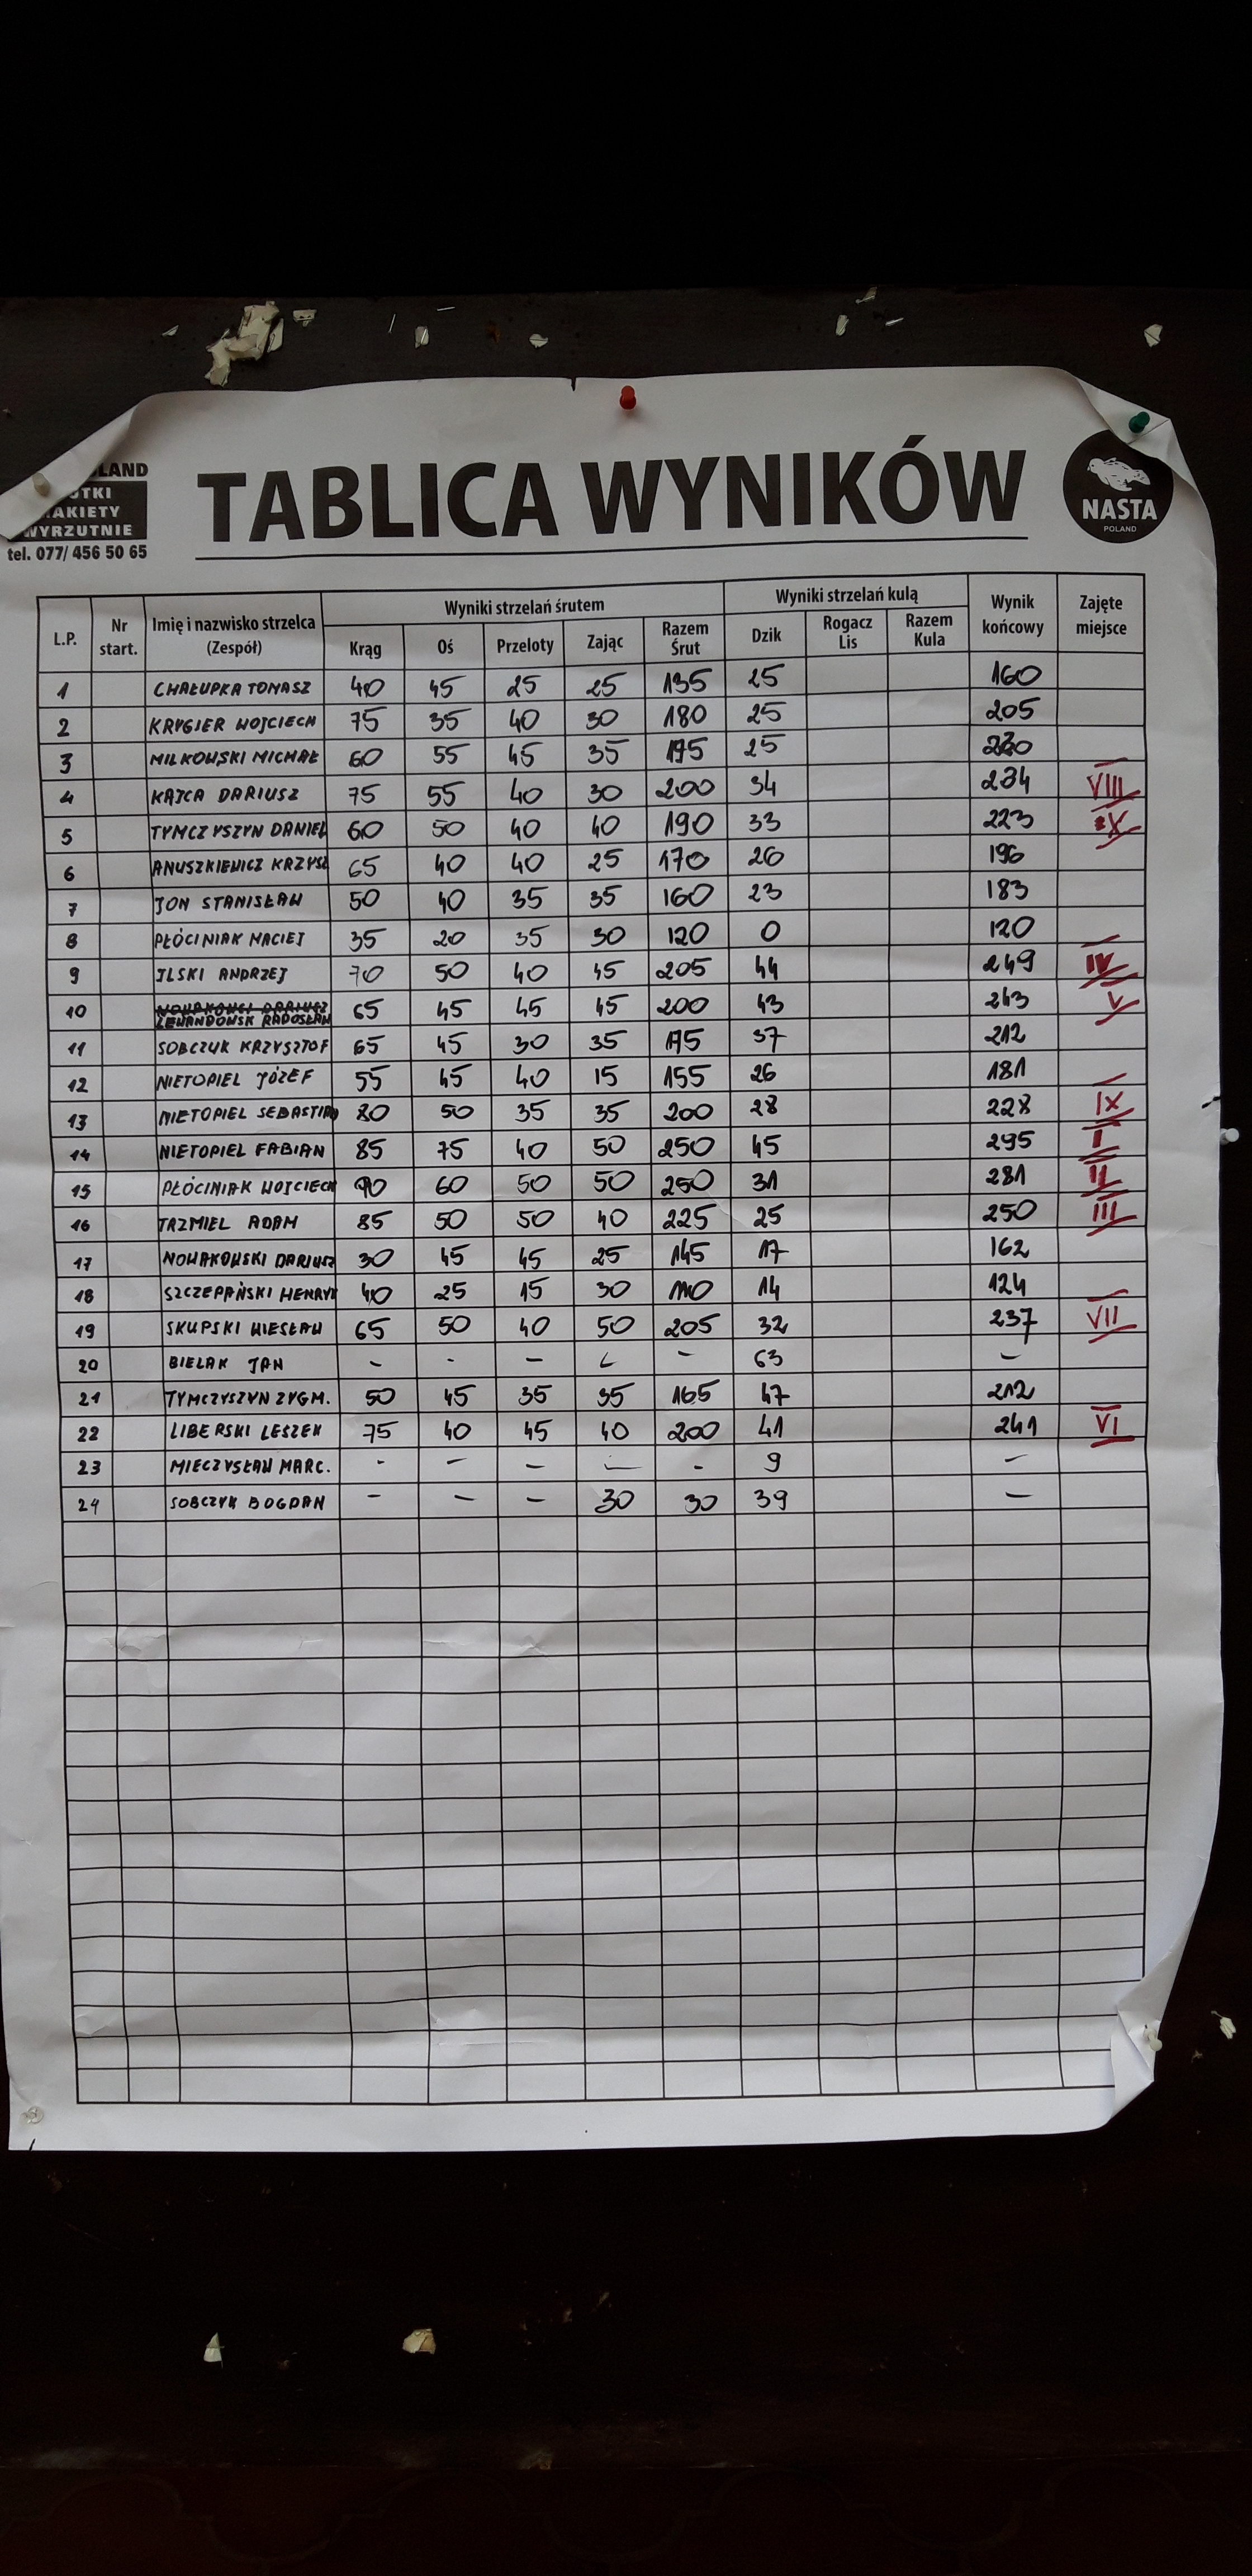 LAND
TABLICA WYNIKÓW
NASTA
POLAND
tel. 077/ 456 50 65
Wyniki strzelań śrutem Wyniki strzelań kulą
L.P. Nr start. Imię i nazwisko strzelca (Zespół) Krąg Oś Przeloty Zając Razem Śrut Dzik Rogacz Lis Razem Kula Wynik końcowy Zajęte miejsce
1 CHAŁUPKA TOMASZ 40 45 25 25 135 25 160
2 KRYGIER WOJCIECH 75 35 40 30 180 25 205
3 MILKOWSKI MICHAŁ 60 55 45 35 195 25 220
4 KAJCA DARIUSZ 75 55 40 30 200 34 234 VIII
5 TYMCZYSZYN DANIEL 60 50 40 40 190 33 223 X
6 ANUSZKIEWICZ KRZYSZ 65 40 40 25 170 26 196
7 JON STANISŁAW 50 40 35 35 160 23 183
8 PŁÓCINIAK MACIEJ 35 20 35 30 120 0 120
9 ILSKI ANDRZEJ 70 50 40 45 205 44 249 IV
10 LEWANDOWSK RADOSŁAW 65 45 45 45 200 43 243 V
11 SOBCZUK KRZYSZTOF 65 45 30 35 175 37 212
12 NIETOPIEL JÓZEF 55 45 40 15 155 26 181
13 NIETOPIEL SEBASTIAN 80 50 35 35 200 28 228 IX
14 NIETOPIEL FABIAN 85 75 40 50 250 45 295 I
15 PŁÓCINIAK WOJCIECH 90 60 50 50 250 31 281 II
16 TRZMIEL ADAM 85 50 50 40 225 25 250 III
17 NOWAKOWSKI DARIUSZ 30 45 45 25 145 17 162
18 SZCZEPAŃSKI HENRYK 40 25 15 30 110 14 124
19 SKUPSKI WIESŁAW 65 50 40 50 205 32 237 VII
20 BIELAK JAN - - - - - 63 -
21 TYMCZYSZYN ZYGM. 50 45 35 35 165 47 212
22 LIBERSKI LESZEK 75 40 45 40 200 41 241 VI
23 MIECZYSŁAW MARC. - - - - - 9 -
24 SOBCZYK BOGDAN - - - 30 30 39 -